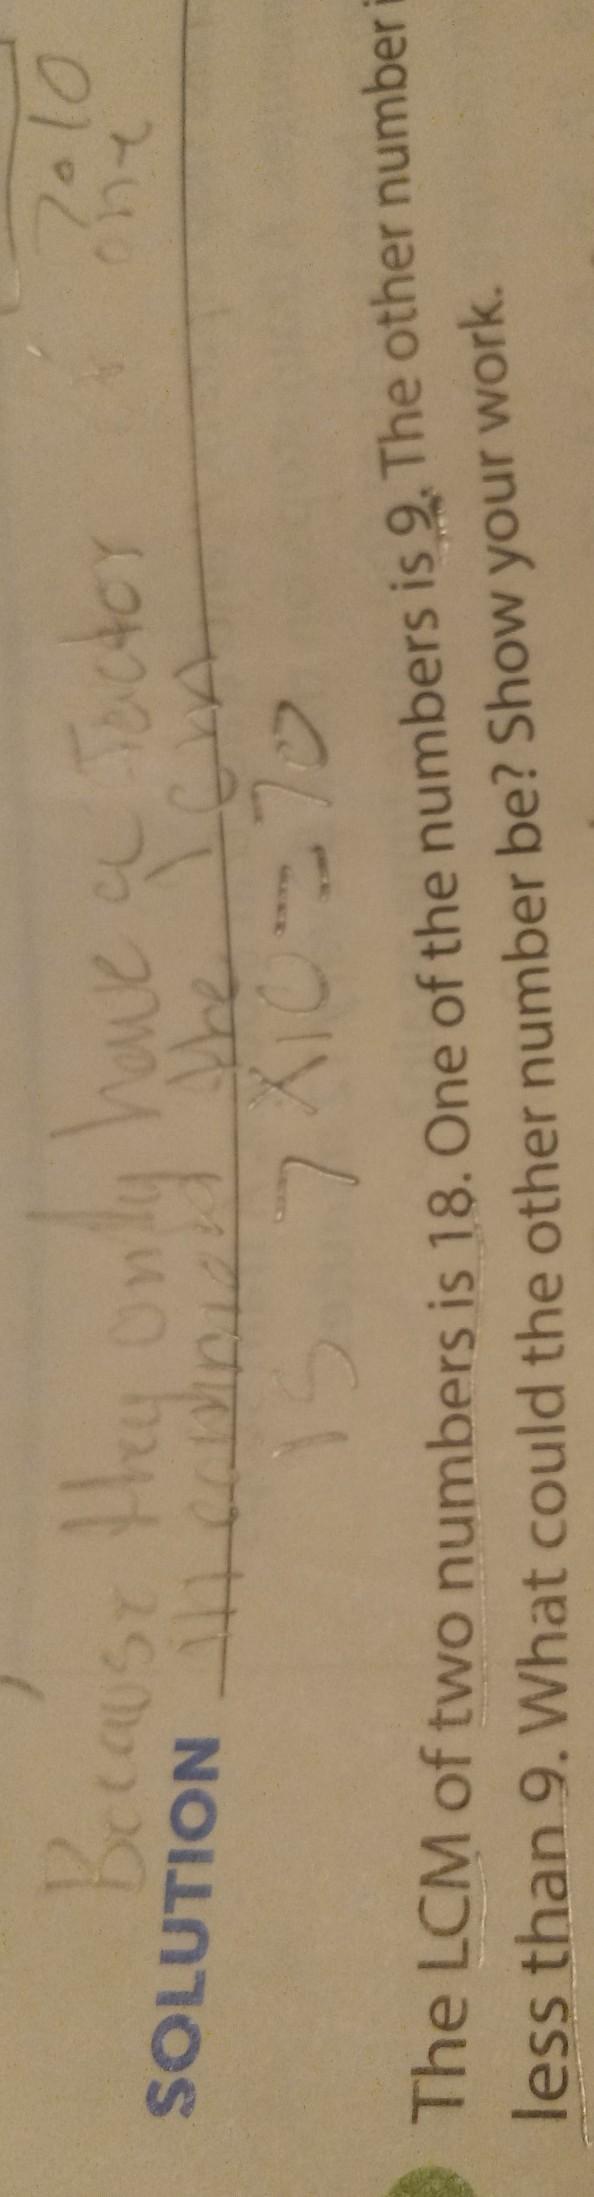 7010
Because they only have a factor of one
SOLUTION in common the lcm
is 7 x 10 = 70
The LCM of two numbers is 18. One of the numbers is 9. The other number i
less than 9. What could the other number be? Show your work.